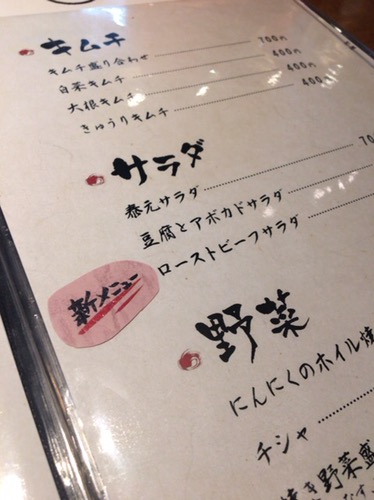 キムチ
キムチ盛り合わせ 700円
白菜キムチ 400円
大根キムチ 400円
きゅうりキムチ 400
サラダ
泰元サラダ 70
豆腐とアボカドサラダ
ローストビーフサラダ
新メニュー
野菜
にんにくのホイル焼
チシャ
焼き野菜盛